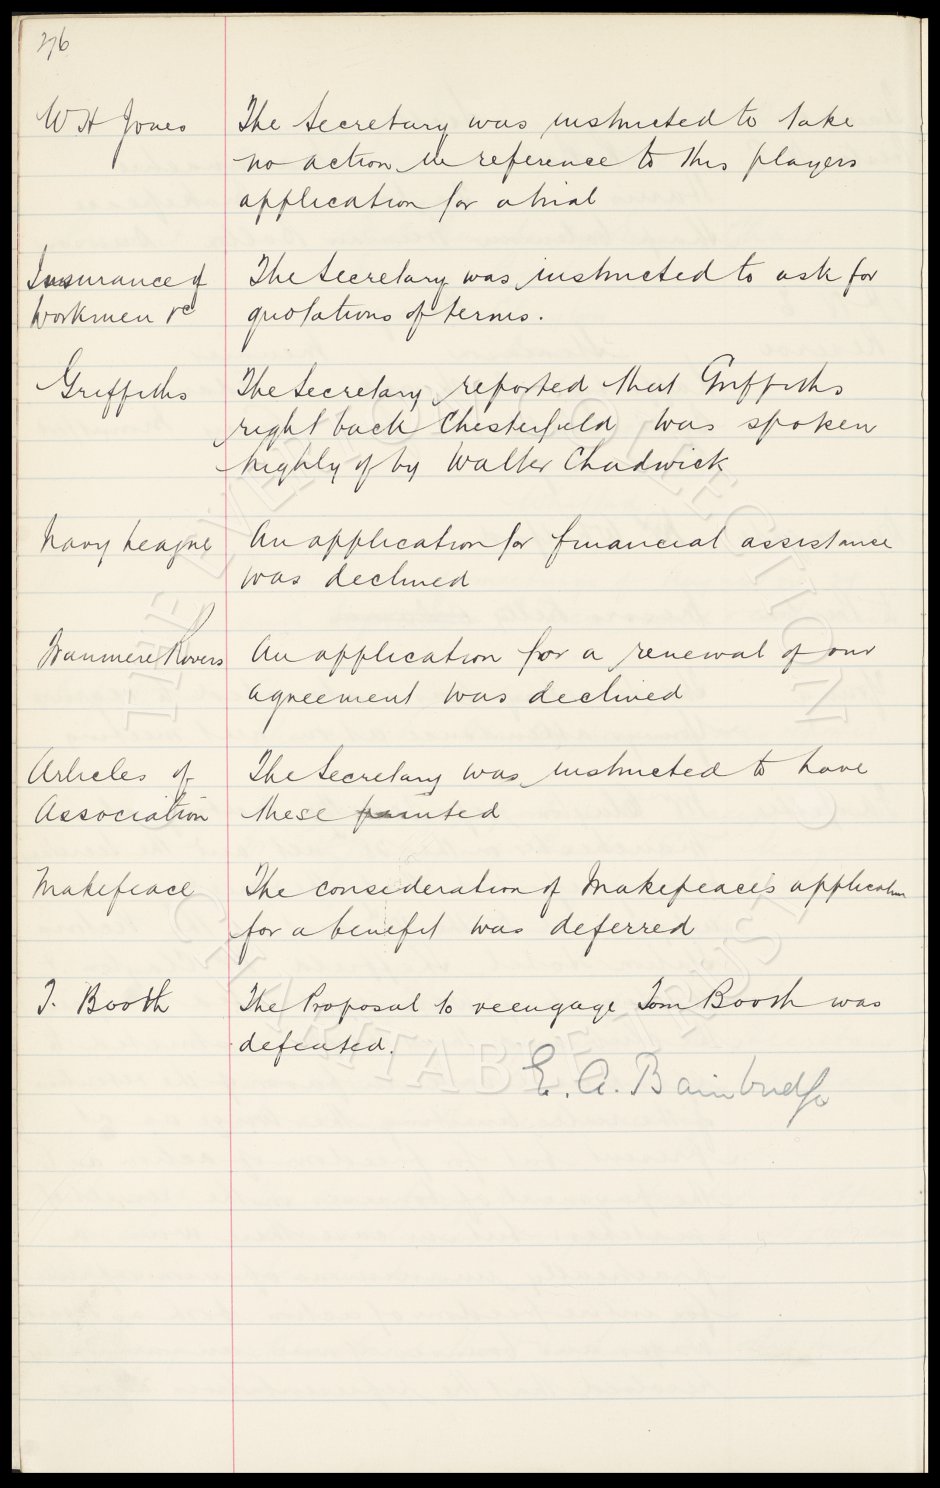 276
W H Jones The Secretary was instructed to take
no action in reference to this players
application for a trial
Insurance of The Secretary was instructed to ask for
Workmen &c quotations of terms.
Griffiths The Secretary reported that Griffiths
right back Chesterfield was spoken
highly of by Walter Chadwick
Navy League An application for financial assistance
was declined
Tranmere Rovers An application for a renewal of our
agreement was declined
Articles of The Secretary was instructed to have
Association these printed
Makepeace The consideration of Makepeace's application
for a benefit was deferred
T. Booth The Proposal to reengage Tom Booth was
defeated.
E. A. Bainbridge
THE EVERTON COLLECTION CHARITABLE TRUST ©